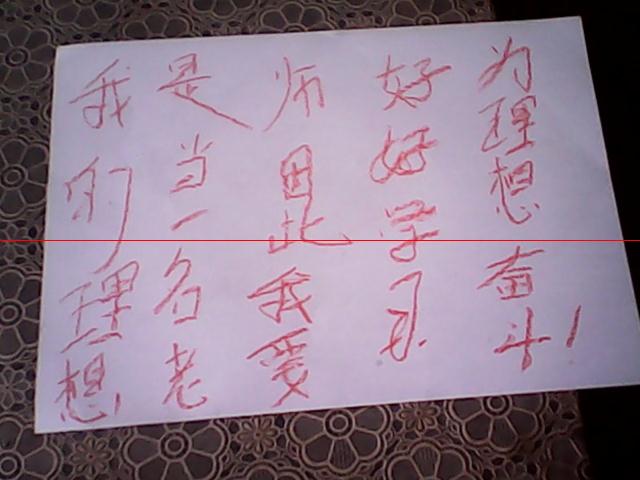 我的理想
是当一名老
师因此我爱
好好学习
为理想奋斗！